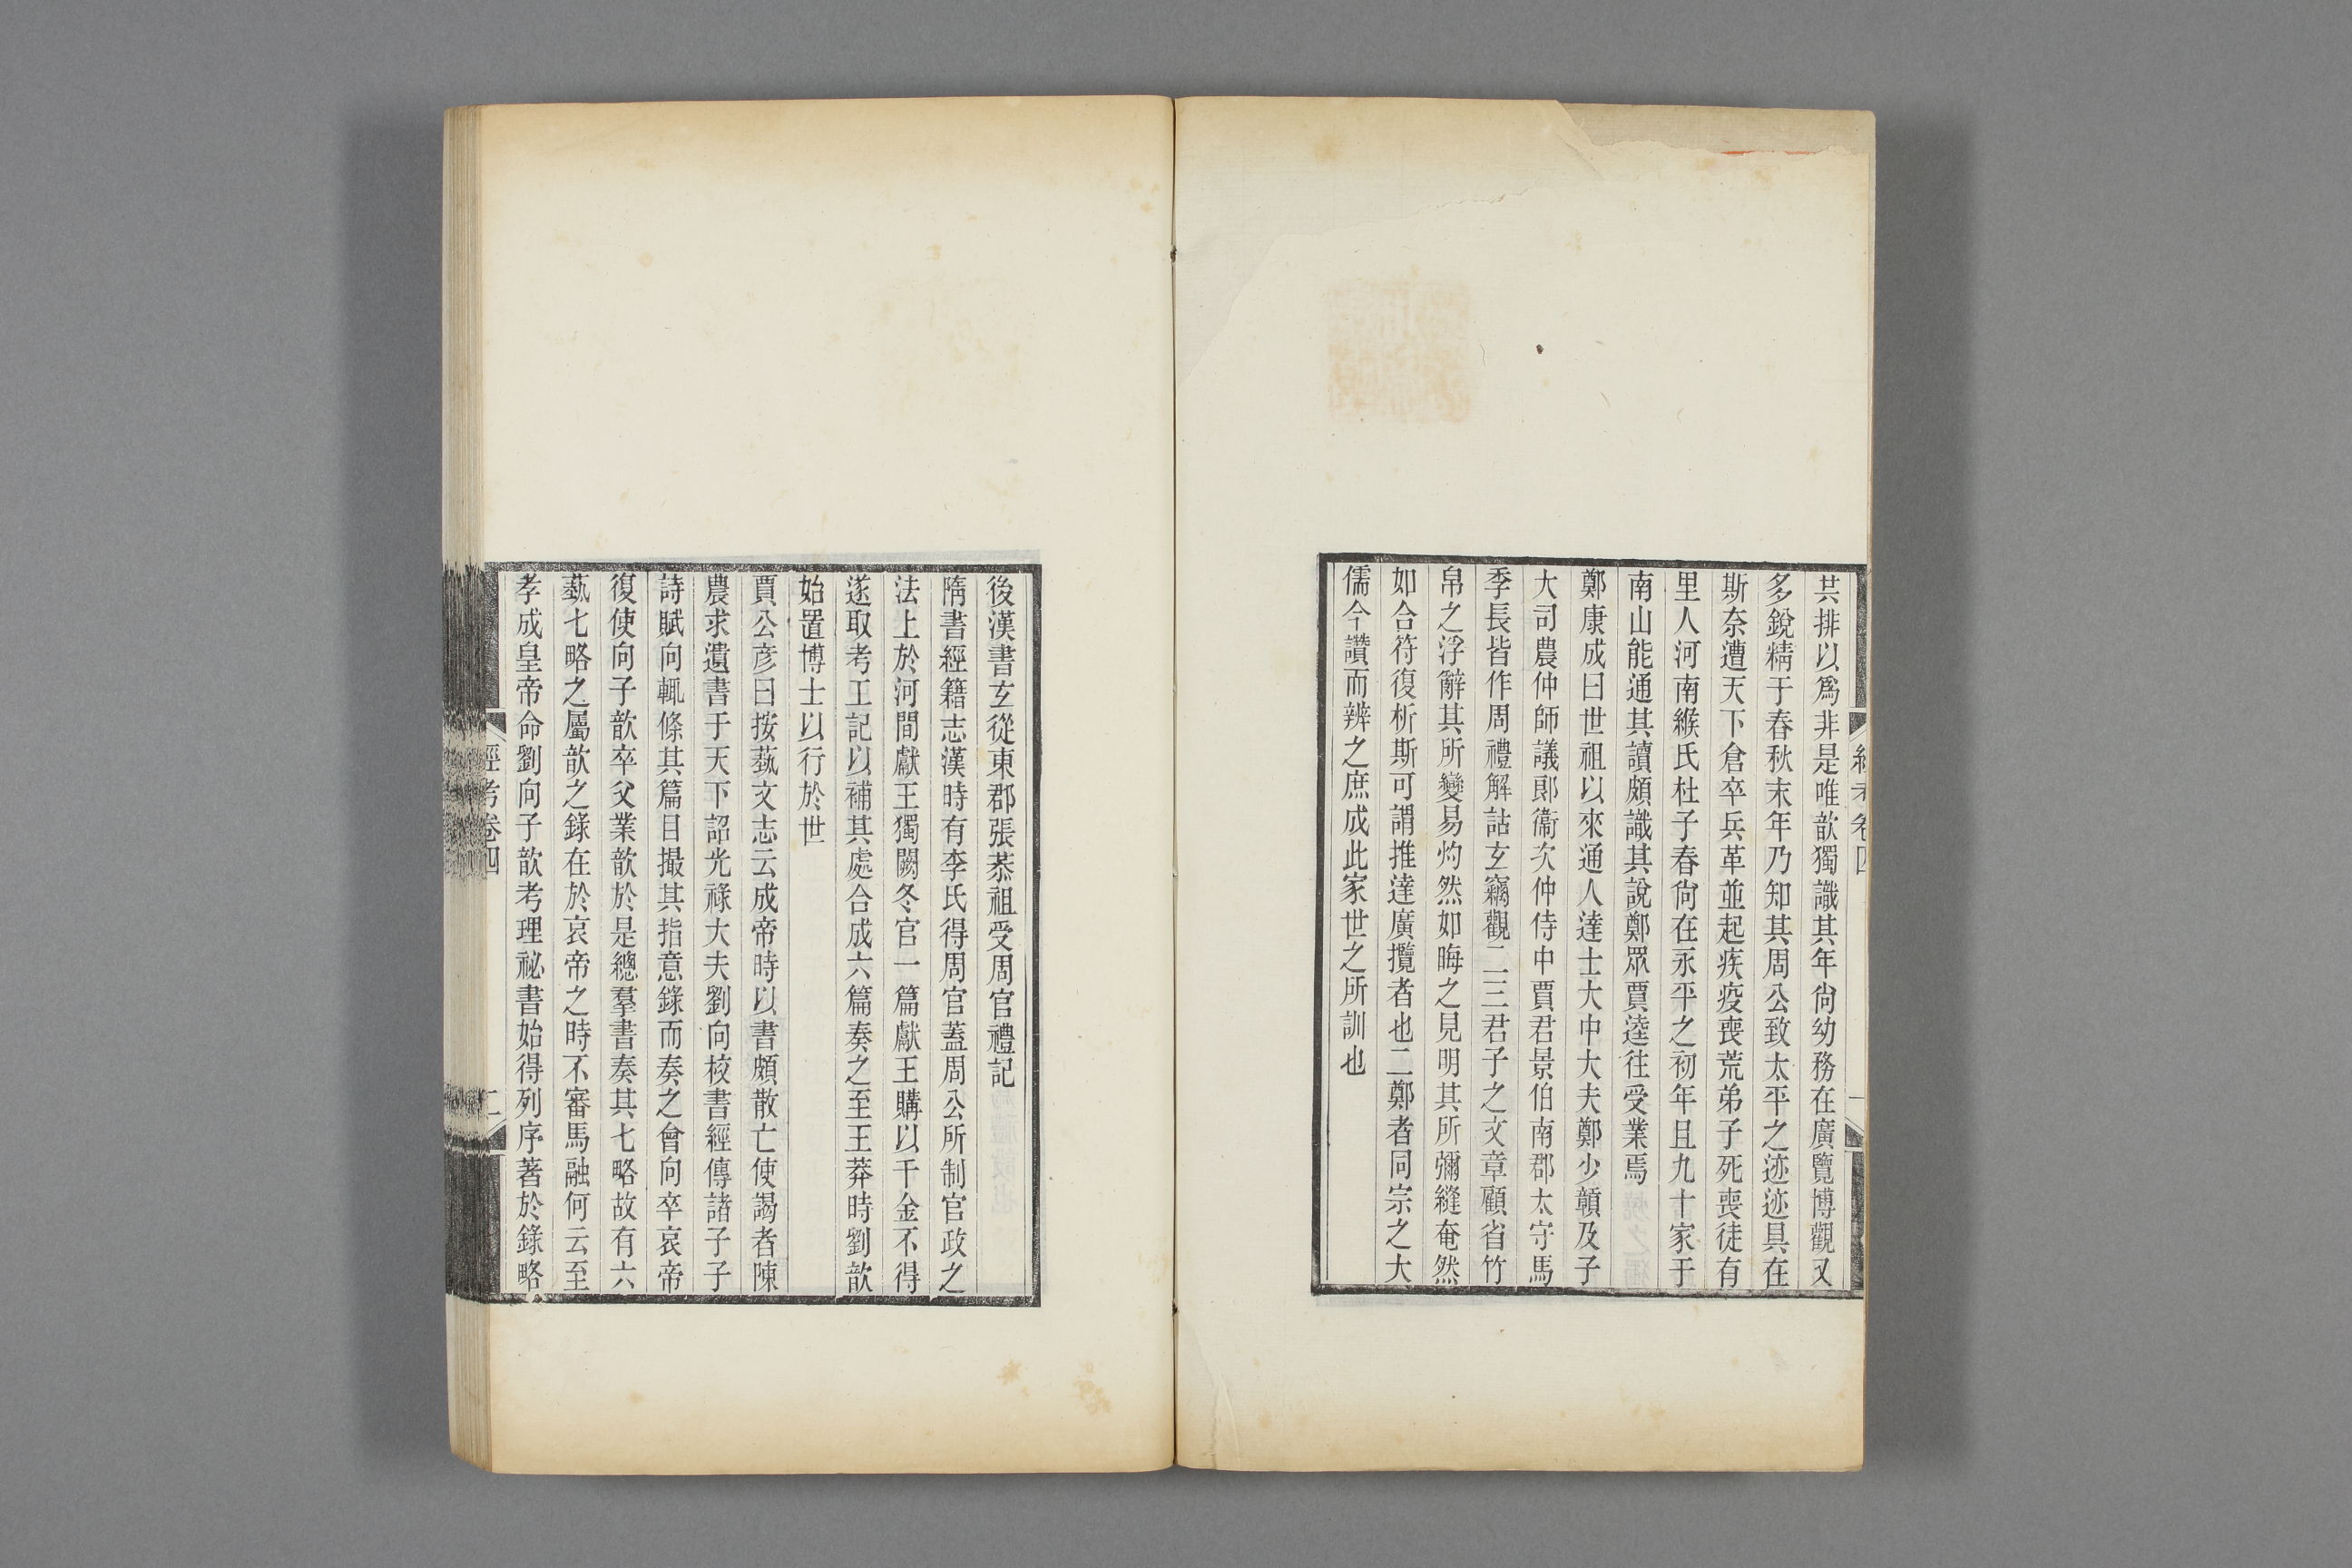 經考卷四
一
共排以爲非是唯歆獨識其年尙幼務在廣覽博觀又
多銳精于春秋末年乃知其周公致太平之迹迹具在
斯奈遭天下倉卒兵革並起疾疫喪荒弟子死喪徒有
里人河南緱氏杜子春尙在永平之初年且九十家于
南山能通其讀頗識其說鄭眾賈逵往受業焉
鄭康成曰世祖以來通人達士大中大夫鄭少贛及子
大司農仲師議郞衞次仲侍中賈君景伯南郡太守馬
季長皆作周禮解詁玄竊觀二三君子之文章顧省竹
帛之浮辭其所變易灼然如晦之見明其所彌縫奄然
如合符復析斯可謂推達廣攬者也二鄭者同宗之大
儒今讚而辨之庶成此家世之所訓也
後漢書玄從東郡張恭祖受周官禮記
隋書經籍志漢時有李氏得周官蓋周公所制官政之
法上於河間獻王獨闕冬官一篇獻王購以千金不得
遂取考工記以補其處合成六篇奏之至王莽時劉歆
始置博士以行於世
賈公彥曰按蓺文志云成帝時以書頗散亡使謁者陳
農求遺書于天下詔光祿大夫劉向校書經傳諸子
詩賦向輒條其篇目撮其指意錄而奏之會向卒哀帝
復使向子歆卒父業歆於是總羣書奏其七略故有六
蓺七略之屬歆之錄在於哀帝之時不審馬融何云至
孝成皇帝命劉向子歆考理祕書始得列序著於錄略
經考卷四
二